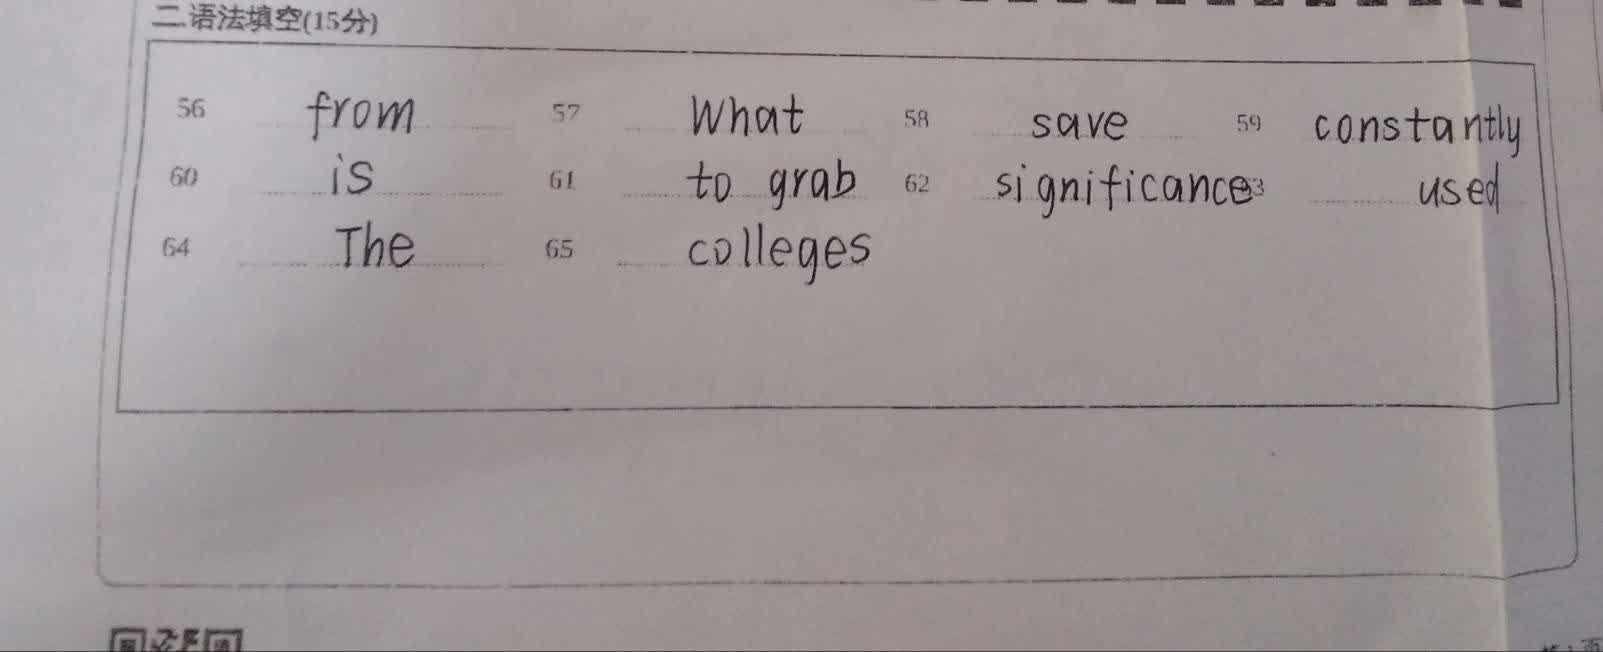 二.语法填空(15分)
56 from 57 What 58 save 59 constantly
60 is 61 to grab 62 significance 63 used
64 The 65 colleges